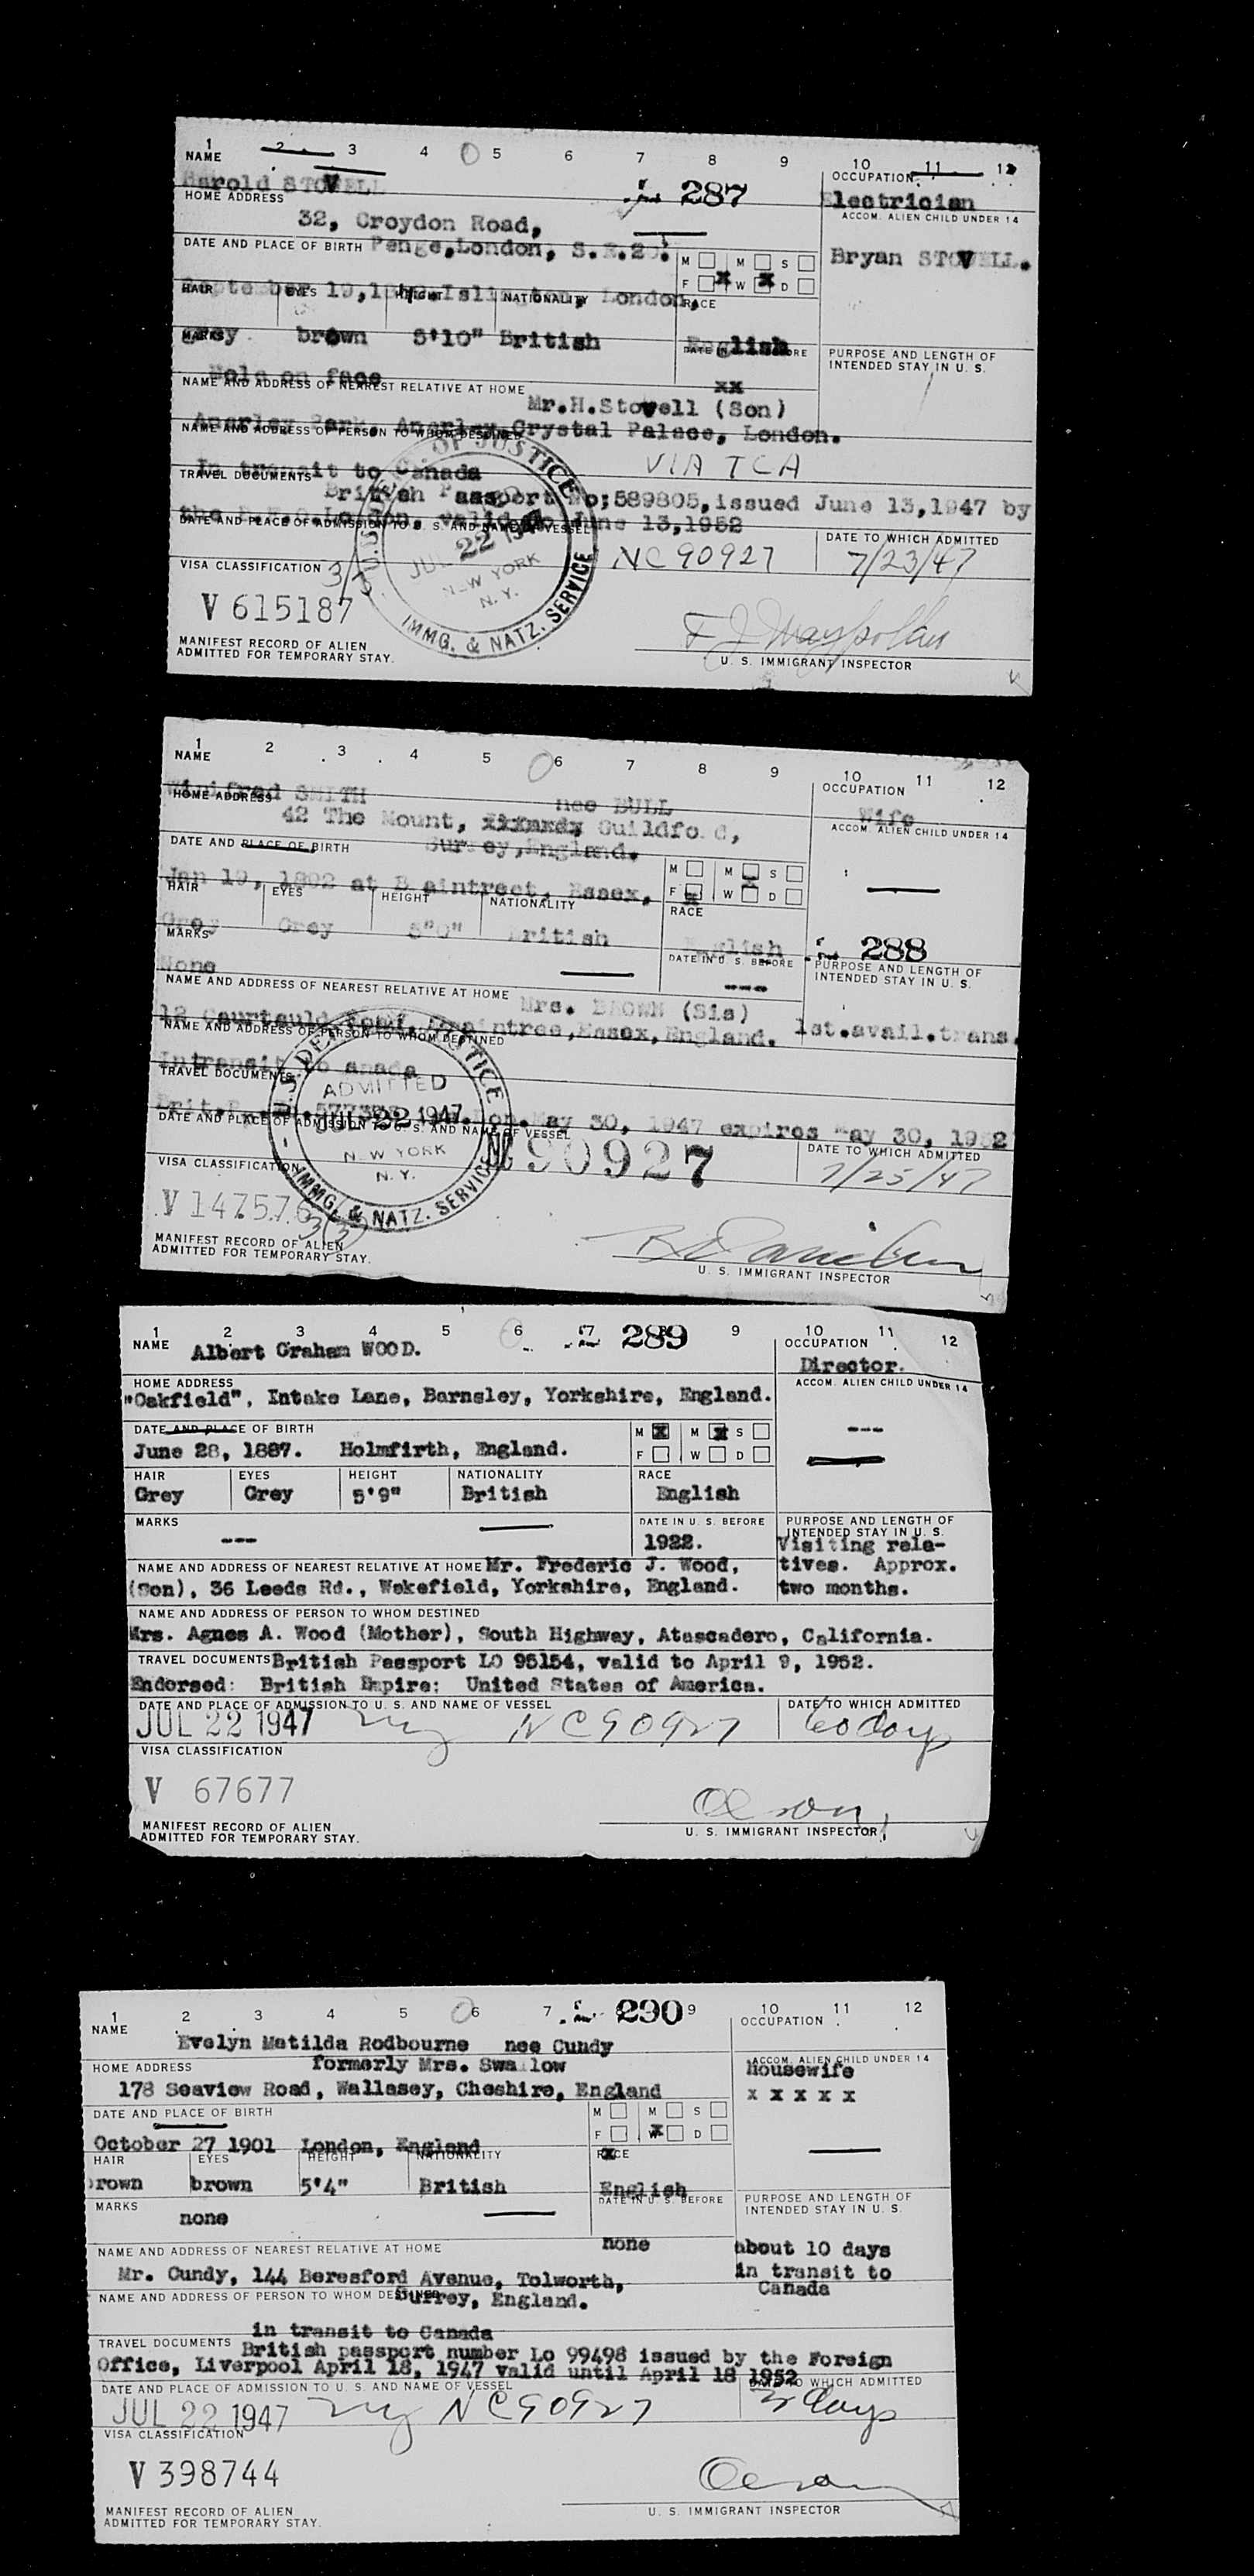 1 2 3 4 5 6 7 8 9 10 11 12
NAME OCCUPATION
Harold STOVELL 287 Electrician
HOME ADDRESS ACCOM. ALIEN CHILD UNDER 14
32, Croydon Road,
DATE AND PLACE OF BIRTH Penge, London, S.E.20. M M S Bryan STOVELL.
F X W X D
September 19, Islington, London,
HAIR EYES HEIGHT NATIONALITY RACE
grey brown 5'10" British English
MARKS DATE IN U. S. BEFORE PURPOSE AND LENGTH OF
INTENDED STAY IN U. S.
Mole on face xx
NAME AND ADDRESS OF NEAREST RELATIVE AT HOME Mr.H.Stovell (Son)
Anerley Park, Anerley, Crystal Palace, London.
NAME AND ADDRESS OF PERSON TO WHOM DESTINED
In transit to Canada VIA TCA
TRAVEL DOCUMENTS British Passport No;589805, issued June 13,1947 by
the London, valid to June 13,1952
DATE AND PLACE OF ADMISSION TO U. S. AND NAME OF VESSEL DATE TO WHICH ADMITTED
NC 90927 7/23/47
JUL 22 1947
NEW YORK
N. Y.
IMMG. & NATZ. SERVICE
VISA CLASSIFICATION
V 615187
MANIFEST RECORD OF ALIEN
ADMITTED FOR TEMPORARY STAY.
U. S. IMMIGRANT INSPECTOR
1 2 3 4 5 6 7 8 9 10 11 12
NAME OCCUPATION
Winifred SMITH nee BULL Wife
HOME ADDRESS ACCOM. ALIEN CHILD UNDER 14
42 The Mount, Guildford,
DATE AND PLACE OF BIRTH Surrey, England. M M S
F W D
Jan 19, 1892 at Braintree, Essex,
HAIR EYES HEIGHT NATIONALITY RACE
Grey Grey 5"0" British English 288
MARKS DATE IN U. S. BEFORE PURPOSE AND LENGTH OF
INTENDED STAY IN U. S.
None ---
NAME AND ADDRESS OF NEAREST RELATIVE AT HOME Mrs. BROWN (Sis)
12 Courtauld Road, Braintree, Essex, England. 1st.avail.trans.
NAME AND ADDRESS OF PERSON TO WHOM DESTINED
Intransit to Canada
TRAVEL DOCUMENTS
May 30, 1947 expires May 30, 1952
DATE AND PLACE OF ADMISSION TO U. S. AND NAME OF VESSEL DATE TO WHICH ADMITTED
NC 90927 7/25/47
ADMITTED
JUL 22 1947
NEW YORK
N. Y.
IMMG. & NATZ. SERVICE
VISA CLASSIFICATION
V 147576
MANIFEST RECORD OF ALIEN
ADMITTED FOR TEMPORARY STAY.
U. S. IMMIGRANT INSPECTOR
1 2 3 4 5 6 7 289 9 10 11 12
NAME Albert Graham WOOD. OCCUPATION
Director.
HOME ADDRESS ACCOM. ALIEN CHILD UNDER 14
"Oakfield", Intake Lane, Barnsley, Yorkshire, England.
DATE AND PLACE OF BIRTH M X M X S ---
June 28, 1887. Holmfirth, England. F W D
HAIR EYES HEIGHT NATIONALITY RACE
Grey Grey 5'9" British English
MARKS DATE IN U. S. BEFORE PURPOSE AND LENGTH OF
INTENDED STAY IN U. S.
--- 1922. Visiting rela-
NAME AND ADDRESS OF NEAREST RELATIVE AT HOME Mr. Frederic J. Wood, tives. Approx.
(Son), 36 Leeds Rd., Wakefield, Yorkshire, England. two months.
NAME AND ADDRESS OF PERSON TO WHOM DESTINED
Mrs. Agnes A. Wood (Mother), South Highway, Atascadero, California.
TRAVEL DOCUMENTS British Passport LO 95154, valid to April 9, 1952.
Endorsed: British Empire: United States of America.
DATE AND PLACE OF ADMISSION TO U. S. AND NAME OF VESSEL DATE TO WHICH ADMITTED
JUL 22 1947 ny NC90927 60 days
VISA CLASSIFICATION
V 67677
Olson
MANIFEST RECORD OF ALIEN
ADMITTED FOR TEMPORARY STAY.
U. S. IMMIGRANT INSPECTOR
1 2 3 4 5 6 7 290 9 10 11 12
NAME OCCUPATION
Evelyn Matilda Rodbourne nee Cundy
HOME ADDRESS formerly Mrs. Swallow ACCOM. ALIEN CHILD UNDER 14
Housewife
178 Seaview Road, Wallasey, Cheshire, England x x x x x
DATE AND PLACE OF BIRTH M M S
F W X D
October 27 1901 London, England
HAIR EYES HEIGHT NATIONALITY RACE
brown brown 5'4" British English
MARKS DATE IN U. S. BEFORE PURPOSE AND LENGTH OF
INTENDED STAY IN U. S.
none none
NAME AND ADDRESS OF NEAREST RELATIVE AT HOME about 10 days
Mr. Cundy, 144 Beresford Avenue, Tolworth, in transit to
NAME AND ADDRESS OF PERSON TO WHOM DESTINED Surrey, England. Canada
in transit to Canada
TRAVEL DOCUMENTS British passport number Lo 99498 issued by the Foreign
Office, Liverpool April 18, 1947 valid until April 18 1952
DATE AND PLACE OF ADMISSION TO U. S. AND NAME OF VESSEL DATE TO WHICH ADMITTED
JUL 22 1947 ny NC90927 3 days
VISA CLASSIFICATION
V 398744
Olson
MANIFEST RECORD OF ALIEN
ADMITTED FOR TEMPORARY STAY.
U. S. IMMIGRANT INSPECTOR